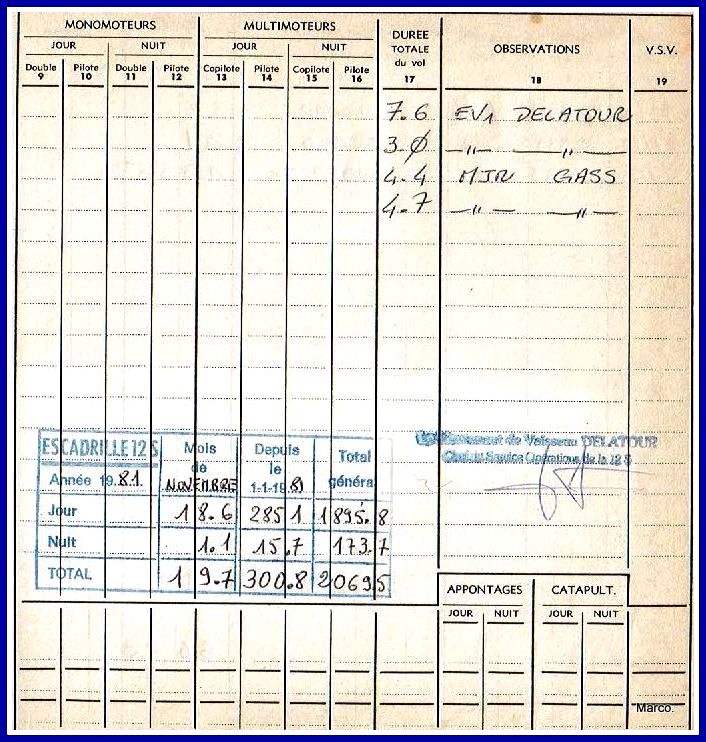 MONOMOTEURS MULTIMOTEURS DUREE TOTALE du vol OBSERVATIONS V.S.V.
JOUR NUIT JOUR NUIT
Double Pilote Double Pilote Copilote Pilote Copilote Pilote
9 10 11 12 13 14 15 16 17 18 19
7.6 EV1 DELATOUR
3.Ø —"— —"—
4.4 MTR GASS
4.7 —"— —"—
ESCADRILLE 12 S Mois de NOVEMBRE Depuis le 1-1-1981 Total général
Année 1981.
Jour 18.6 285 1 1895.8
Nuit 1.1 15.7 173.7
TOTAL 19.7 300.8 20695
de Vaisseau DELATOUR
Chef du Service Opérations de la 12 S
APPONTAGES CATAPULT.
JOUR NUIT JOUR NUIT
Marco.